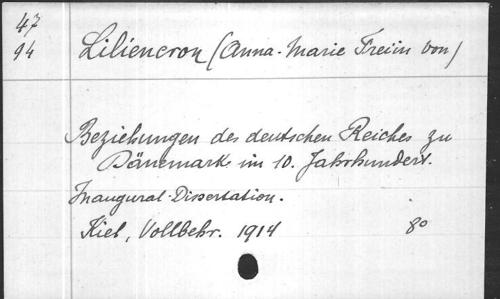 47
94
Liliencron (Anna-Marie Freiin von)
Beziehungen des deutschen Reiches zu
Dänemark im 10. Jahrhundert.
Inaugural-Dissertation.
Kiel, Vollbehr. 1914 8°